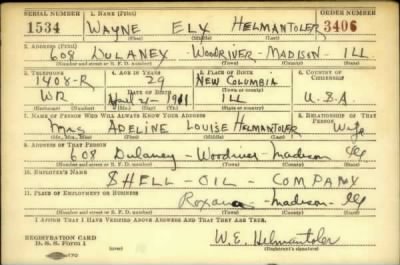 SERIAL NUMBER 1. NAME (Print) ORDER NUMBER
1534 WAYNE ELY HELMANTOLER 3406
(First) (Middle) (Last)
2. ADDRESS (Print)
608 DULANEY - WOODRIVER - MADISON ILL
(Number and street or R. F. D. number) (Town) (County) (State)
3. TELEPHONE 4. AGE IN YEARS 5. PLACE OF BIRTH 6. COUNTRY OF CITIZENSHIP
1408-R 39 NEW COLUMBIA
DATE OF BIRTH (Town or county)
WR April 21 - 1901 ILL U.S.A.
(Exchange) (Number) (Mo.) (Day) (Yr.) (State or country)
7. NAME OF PERSON WHO WILL ALWAYS KNOW YOUR ADDRESS 8. RELATIONSHIP OF THAT PERSON
Mrs ADELINE LOUISE HELMANTOLER Wife
(Mr., Mrs., Miss) (First) (Middle) (Last)
9. ADDRESS OF THAT PERSON
608 Dulaney - Woodriver - Madison Ill
(Number and street or R. F. D. number) (Town) (County) (State)
10. EMPLOYER'S NAME
SHELL - OIL COMPANY
11. PLACE OF EMPLOYMENT OR BUSINESS
Roxana - Madison - Ill
(Number and street or R. F. D. number) (Town) (County) (State)
I AFFIRM THAT I HAVE VERIFIED ABOVE ANSWERS AND THAT THEY ARE TRUE.
REGISTRATION CARD
D. S. S. Form 1 W. E. Helmantoler
(Registrant's signature)